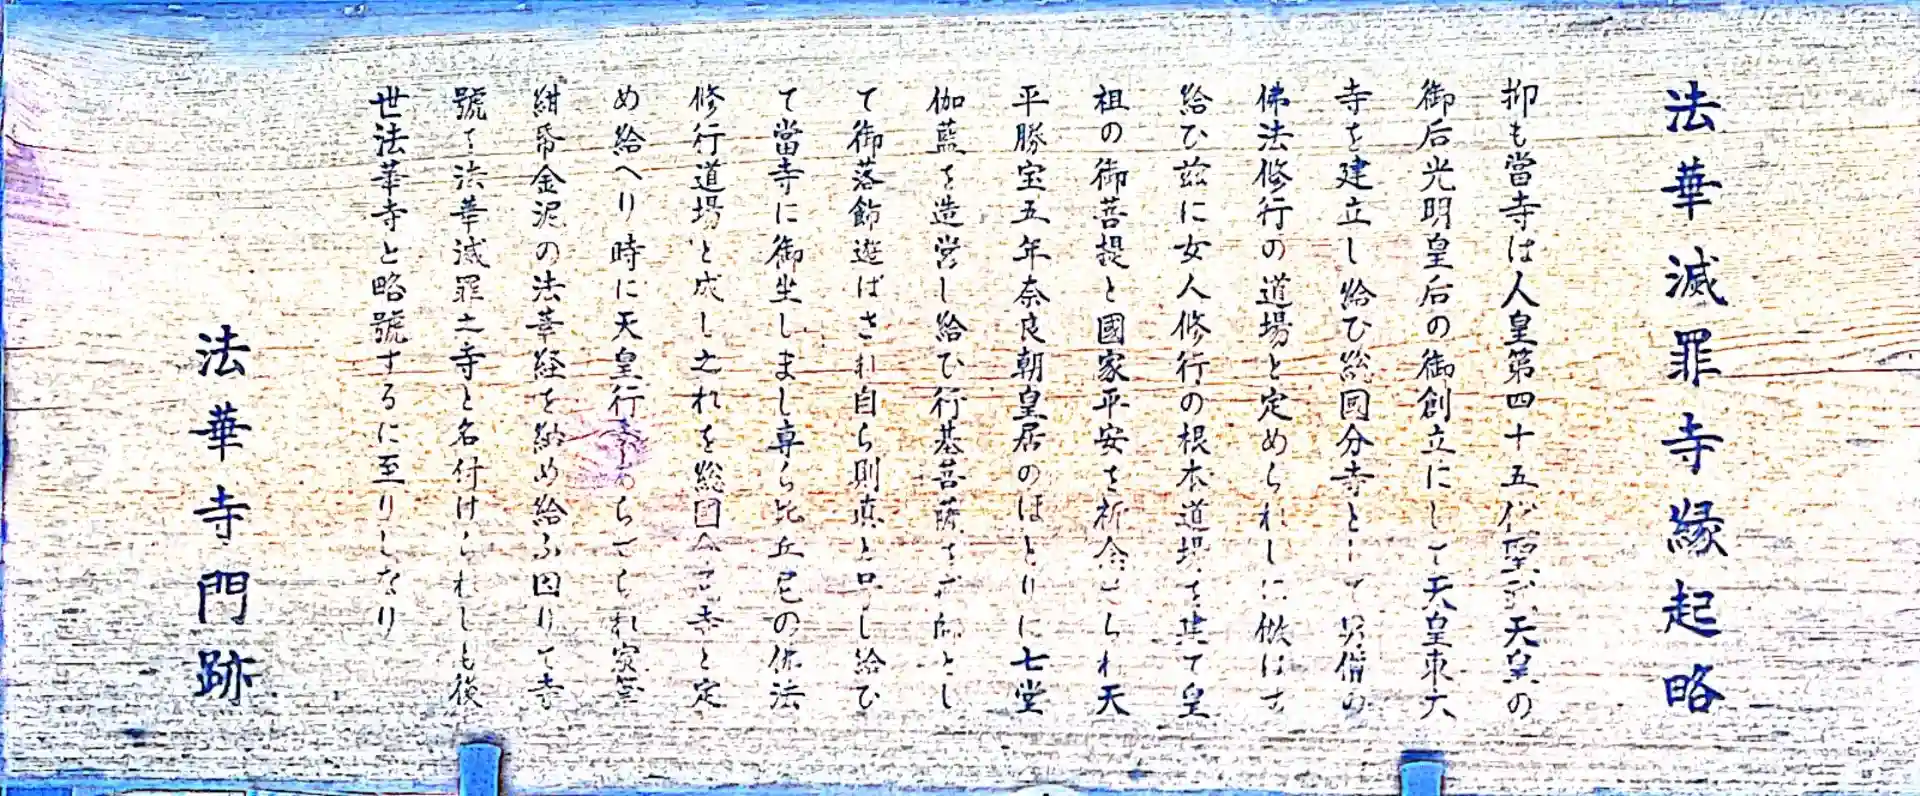 法華滅罪寺縁起略
抑も當寺は人皇第四十五代聖武天皇の
御后光明皇后の御創立にして天皇東大
寺を建立し給ひ総国分寺として男僧の
佛法修行の道場と定められしに倣はせ
給ひ茲に女人修行の根本道場を建て皇
祖の御菩提と國家平安を祈念せられ天
平勝宝五年奈良朝皇居のほとりに七堂
伽藍を造営し給ひ行基菩薩を戒師とし
て御落飾遊ばされ自ら則真と号し給ひ
て當寺に御坐しまし専ら比丘尼の佛法
修行道場と成し之れを総国分尼寺と定
め給へり時に天皇行幸あらせられ家筐
紺帋金泥の法華経を納め給ふ因りて寺
號を法華滅罪之寺と名付けられしも後
世法華寺と略號するに至りしなり
法華寺門跡